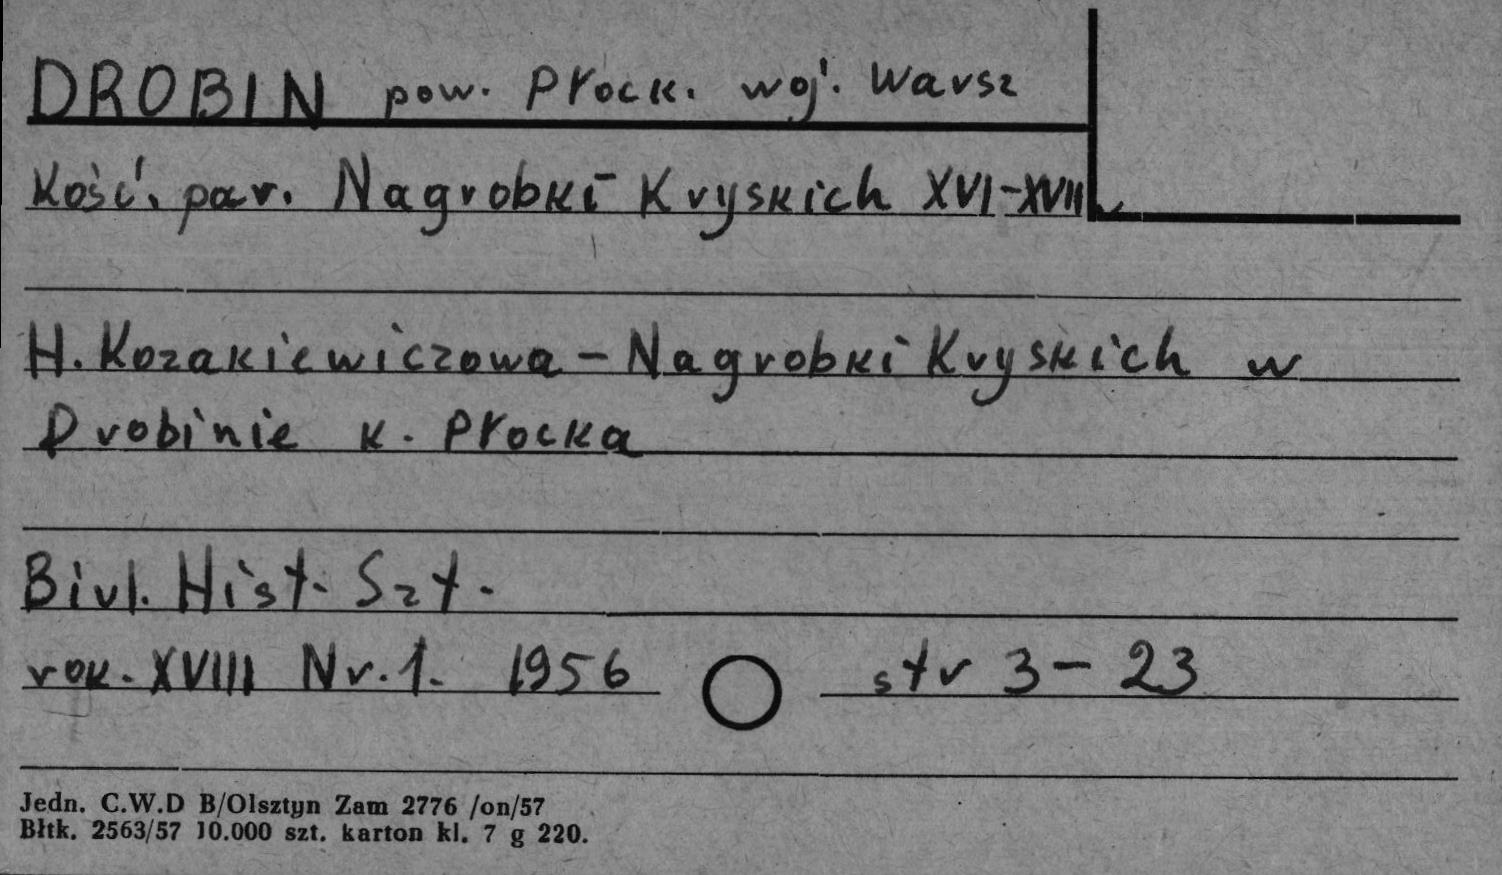 DROBIN pow. Płock. woj. Warsz
Kość. par. Nagrobki Kryskich XVI-XVII w
H. Kozakiewiczowa - Nagrobki Kryskich w
Drobinie k. Płocka
Biul. Hist. Szt.
rok. XVIII Nr. 1. 1956 str 3 - 23
Jedn. C.W.D B/Olsztyn Zam 2776 /on/57
Błtk. 2563/57 10.000 szt. karton kl. 7 g 220.